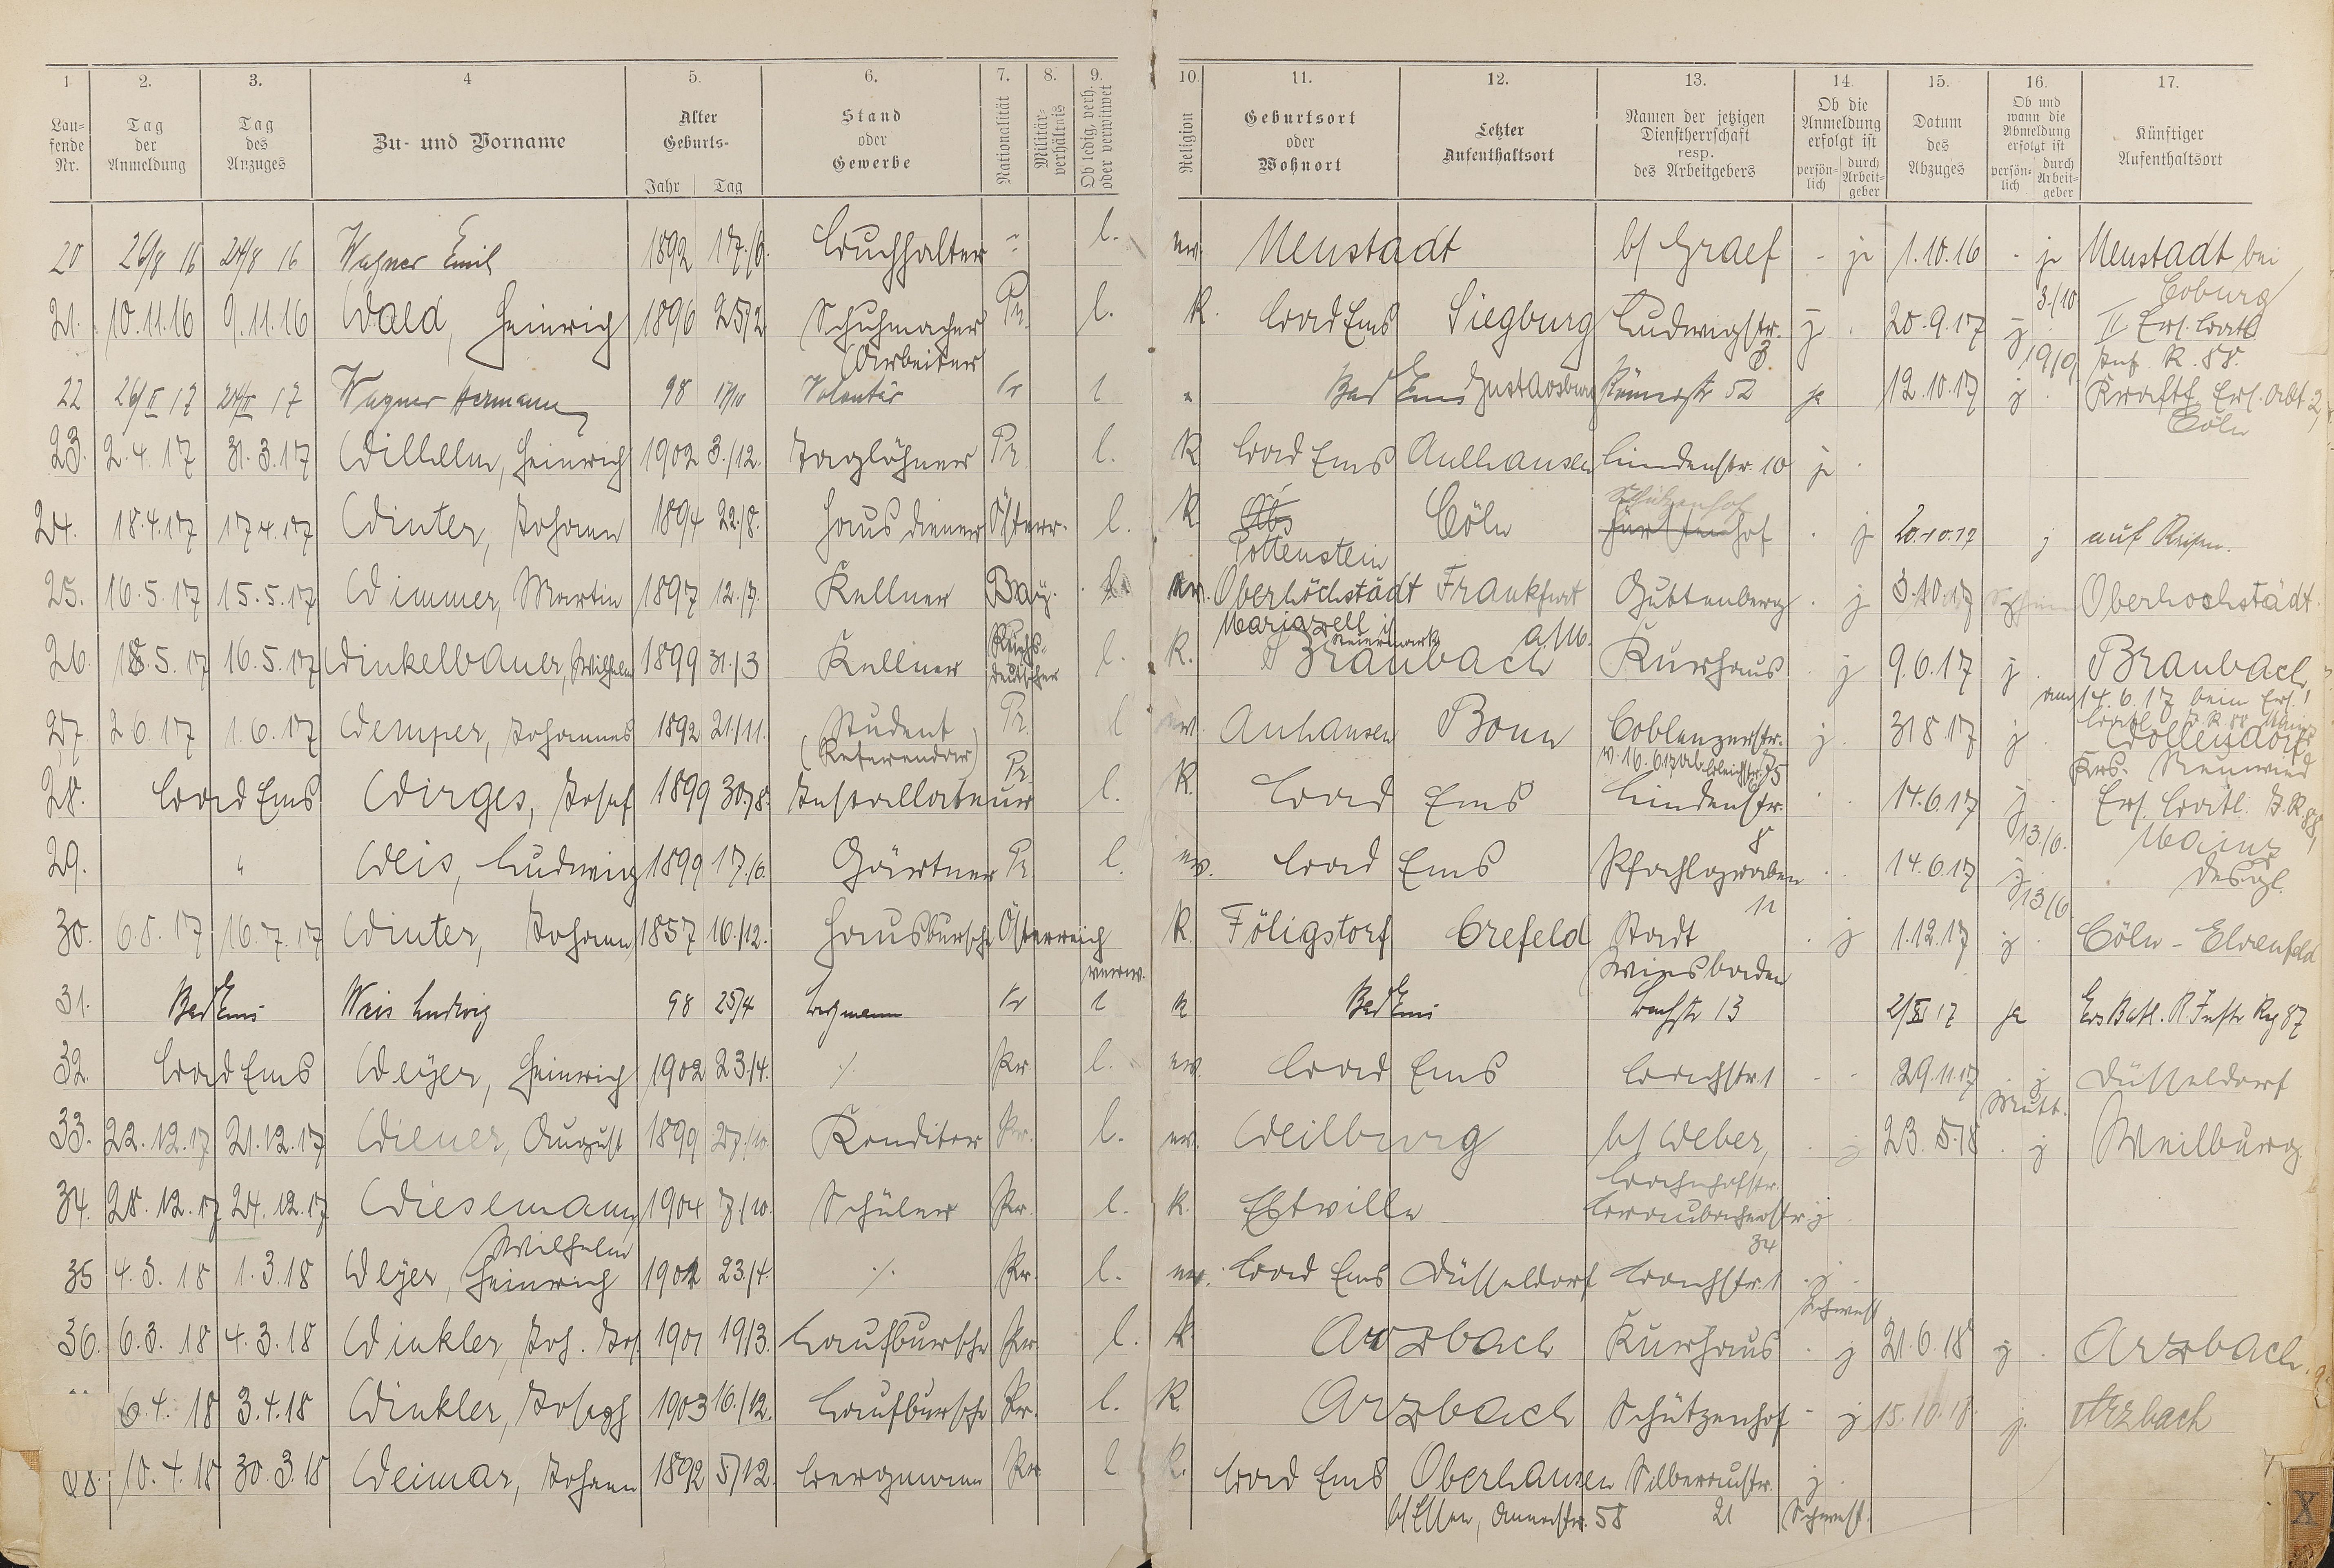 1 2. 3. 4 5. 6. 7. 8. 9. 10. 11. 12. 13. 14. 15. 16. 17.
Lau-
fende
Nr.
Tag
der
Anmeldung
Tag
des
Anzuges
Zu- und Vorname
Alter
Geburts-
Jahr Tag
Stand
oder
Gewerbe
Nationalität
Militär-
verhältnis
Ob ledig, verh.
oder verwitwet
Religion
Geburtsort
oder
Wohnort
Letzter
Aufenthaltsort
Namen der jetzigen
Dienstherrschaft
resp.
des Arbeitgebers
Ob die
Anmeldung
erfolgt ist
persön-
lich
durch
Arbeit-
geber
Datum
des
Abzuges
Ob und
wann die
Abmeldung
erfolgt ist
persön-
lich
durch
Arbeit-
geber
Künftiger
Aufenthaltsort
20 26/8 16 24/8 16 Wagner Emil 1892 17./6. Buchhalter l. ev. Neustadt b/ Graef - ja 1.10.16 - ja Neustadt bei
Coburg
21. 10.11.16 9.11.16 Wald, Heinrich 1896 25/2 Schuhmacher Pr. l. K. Bad Ems Siegburg Ludwigstr. j. 20.9.17 j. 3./10 II Ers. Batl
(Arbeiter 3 19/9. Inf. R. 88.
22 26/II 17 24/II 17 Wagner Hermann 98 17/10 Volontär Pr l " Bad Ems Gustavsburg Römerstr 52 ja 12.10.17 j. Kraftf. Ers. Abt. 2,
Cöln
23. 2.4.17 31.3.17 Wilhelm, Heinrich 1902 3./12. Taglöhner Pr. l. K. Bad Ems Aulhausen Lindenstr. 10 j.
Schützenhof
24. 18.4.17 17.4.17 Winter, Johann 1894 22./8. Hausdiener Österr. l. K. Cöln Fürstenhof . j 20.10.17 j auf Reisen.
Pottenstein
25. 16.5.17 15.5.17 Wimmer, Martin 1897 12./7. Kellner Bay. l. ev. Oberhöchstädt Frankfurt Guttenberg . j 3.10.17 Oberhochstädt.
Mariazell i/ Steiermark a/M.
26. 18.5.17 16.5.17 Winkelbauer, Wilhelm 1899 31./3 Kellner Reichs-
deutscher l. K. Braubach Kurhaus . j 9.6.17 j. Braubach,
am 14.6.17 beim Ers.
Batl. J.R. 88 Mainz
27. 2.6.17 1.6.17 Wemper, Johannes 1892 21./11. Student Pr. l ev. Anhausen Bonn Coblenzerstr. j. 31.8.17 j. Wollendorf,
(Referendar) v. 16.6.17 ab Bleichstr. 35 Krs. Neuwied
28. Bad Ems Wirges, Josef 1899 30./8. Installateur Pr. l. K. Bad Ems Lindenstr. . . 14.6.17 j. Ers. Batl. J.R. 88,
8 13/6. Mainz
29. " Weis, Ludwig 1899 17./6. Gärtner Pr. l. ev. Bad Ems Pfahlgraben . . 14.6.17 j. desgl.
11 13/6.
30. 6.8.17 16.7.17 Winter, Johann 1857 16./12. Hausbursche Österreich verw. K. Föligstorf Crefeld Stadt . j 1.12.17 j. Cöln-Ehrenfeld
Wiesbaden
31. Bad Ems Weis Ludwig 98 25/4 Bergmann Pr l K Bad Ems Bachstr 13 2/XI 17 ja Ers Batl. R Inftr Rg 87
32. Bad Ems Weyer, Heinrich 1902 23./4. ./. Pr. l. ev. Bad Ems Bachstr. 1 - - 29.11.17 . j Düsseldorf
Mutt.
33. 22.12.17 21.12.17 Wiener, August 1899 27./10. Konditor Pr. l. ev. Weilburg b/ Weber, . j 23.5.18 . j Weilburg.
Bahnhofstr.
34. 28.12.17 24.12.17 Wiesemann, 1904 7./10. Schüler Pr. l. K. Eltville Braubacherstr. j.
Wilhelm 34
35 4.3.18 1.3.18 Weyer, Heinrich 1902 23./4. ./. Pr. l. ev. Bad Ems Düsseldorf Bachstr. 1 j.
Schwest
36. 6.3.18 4.3.18 Winkler, Joh. Jos. 1901 19/3. Laufbursche Pr. l. K. Arzbach Kurhaus . j 21.6.18 j. Arzbach.
" 6.4.18 3.4.18 Winkler, Joseph 1903 16./12. Laufbursche Pr. l. K. Arzbach Schützenhof - j 15.10.18. j. Arzbach
38. 10.4.18 30.3.18 Weimar, Johann 1892 5/12. Bergmann Pr. l K. Bad Ems Oberhausen Silberaustr. j.
b/Essen, 58 21 Schwest.
X